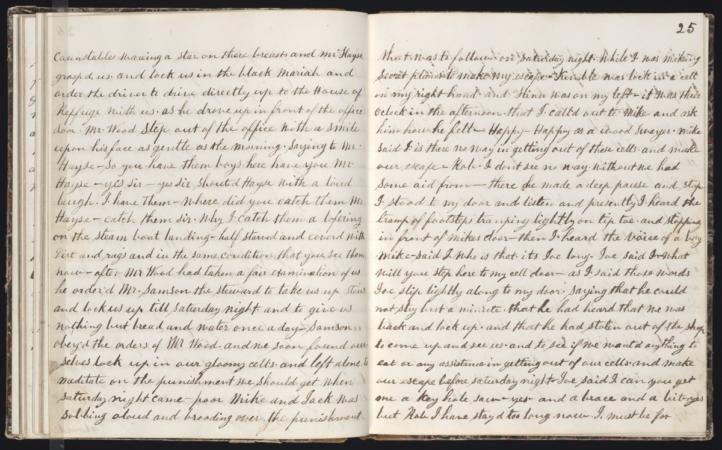 Counstables wearing a star on there breasts and Mr Hayse
grasp'd us and lock us in the black Mariah and
order the driver to drive directly up to the House of
Reffuge with us. as he drove up in front of the office
door. Mr Wood Step out of the office with a smile
upon his face as gentle as the morning. Saying to Mr
Hayse — So you have them boys here have you Mr
Hayse — yes sir — yes sir, Shouted Hayse with a loud
laugh. I have them — where did you catch them Mr
Hayse — catch them sir. Why I catch them a lofering
on the steam boat landing — half starved and coverd with
Dirt and rags and in the same condition that you see them
now — after Mr Wood had taken a fair examination of us
he order'd Mr. Samson the steward to take us up stairs
and lock us up till Saturday night and to give us
nothing but bread and water once a day — Samson
obey'd the orders of Mr Wood. and we soon found our
selves lock up in our gloomy cells. and left alone to
maditate on the punishment we should get when
Saturday night came — poor Mike and Jack was
Sobbing aloud and brooding over the punishment
25
that was to follow on Saturday night. While I was making
Secret plans to make my escape — was lock in a cell
on my right hand and was on my left — it was three
oclock in the afternoon that I call'd out to Mike and ask
him how he felt — Happy — Happy as a wood Sawyer. Mike
Said I is there no way in getting out of these cells. and make
our escape — Rob. I dont see no way without we had
Some aid from — there he made a deep pause and Stop
I stood to my door and listen and presently I heard the
tramp of footsteps tramping lightly on tip toe and stopping
in front of Mikes door — then I heard the voice of a boy
Mike — Said I who is that its Joe long. Joe said I — what
will you step here to my cell door — as I said these words
Joe slip lightly along to my door. Saying that he could
not stay but a minute that he had heard that we was
back and lock up. and that he had stolen out of the shop
to come up and see us. and to see if we wanted anything to
eat or any assistence in getting out of our cells. and make
our escape before saturday night. Joe said I can you get
me a key hole saw — yes — and a brace and a bit — yes
but Rob I have stay'd too long now. I must be for